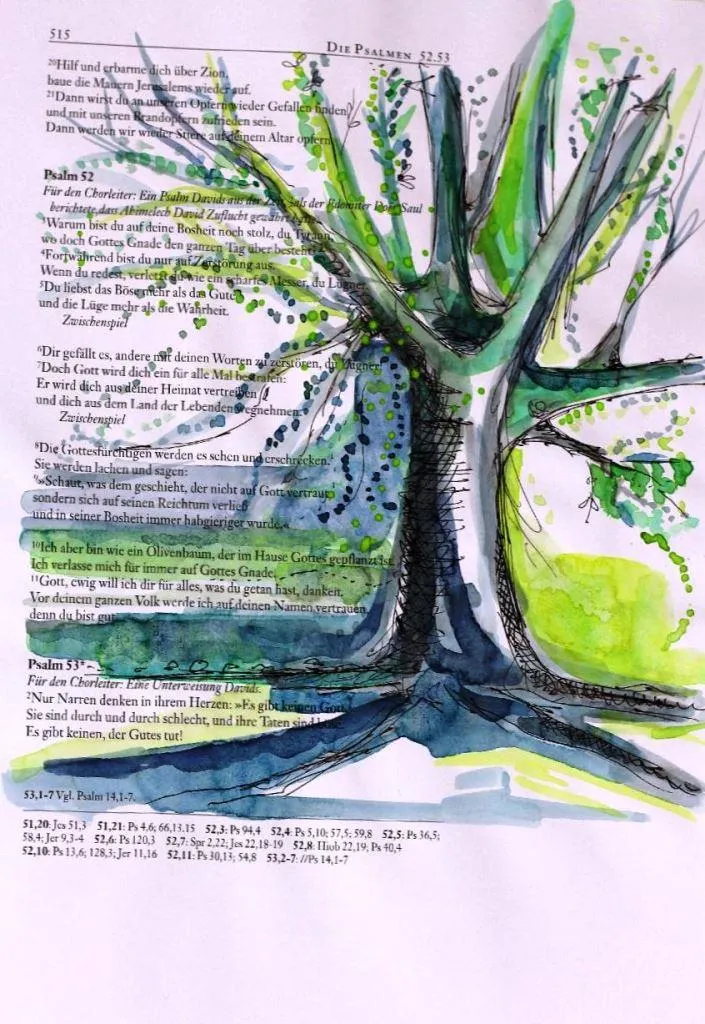 515
DIE PSALMEN 52.53
²⁰Hilf und erbarme dich über Zion,
baue die Mauern Jerusalems wieder auf.
²¹Dann wirst du an unseren Opfern wieder Gefallen finden
und mit unseren Brandopfern zufrieden sein.
Dann werden wir wieder Stiere auf deinem Altar opfern.
Psalm 52
Für den Chorleiter: Ein Psalm Davids aus der Zeit, als der Edomiter Doëg Saul
berichtete, dass Ahimelech David Zuflucht gewährt
³Warum bist du auf deine Bosheit noch stolz, du Tyrann,
wo doch Gottes Gnade den ganzen Tag über besteht
⁴Fortwährend bist du nur auf Zerstörung aus.
Wenn du redest, verletzt du wie ein scharfes Messer, du Lügner
⁵Du liebst das Böse mehr als das Gute
und die Lüge mehr als die Wahrheit.
Zwischenspiel
⁶Dir gefällt es, andere mit deinen Worten zu zerstören, du Lügner!
⁷Doch Gott wird dich ein für alle Mal bestrafen:
Er wird dich aus deiner Heimat vertreiben
und dich aus dem Land der Lebenden wegnehmen.
Zwischenspiel
⁸Die Gottesfürchtigen werden es sehen und erschrecken.
Sie werden lachen und sagen:
⁹»Schaut, was dem geschieht, der nicht auf Gott vertraut,
sondern sich auf seinen Reichtum verließ
und in seiner Bosheit immer habgieriger wurde.«
¹⁰Ich aber bin wie ein Olivenbaum, der im Hause Gottes gepflanzt ist.
Ich verlasse mich für immer auf Gottes Gnade.
¹¹Gott, ewig will ich dir für alles, was du getan hast, danken.
Vor deinem ganzen Volk werde ich auf deinen Namen vertrauen,
denn du bist gut.
Psalm 53*
Für den Chorleiter: Eine Unterweisung Davids.
²Nur Narren denken in ihrem Herzen: »Es gibt keinen Gott.
Sie sind durch und durch schlecht, und ihre Taten sind
Es gibt keinen, der Gutes tut!
53,1-7 Vgl. Psalm 14,1-7.
51,20: Jes 51,3 51,21: Ps 4,6; 66,13.15 52,3: Ps 94,4 52,4: Ps 5,10; 57,5; 59,8 52,5: Ps 36,5;
58,4; Jer 9,3-4 52,6: Ps 120,3 52,7: Spr 2,22; Jes 22,18-19 52,8: Hiob 22,19; Ps 40,4
52,10: Ps 13,6; 128,3; Jer 11,16 52,11: Ps 30,13; 54,8 53,2-7: //Ps 14,1-7